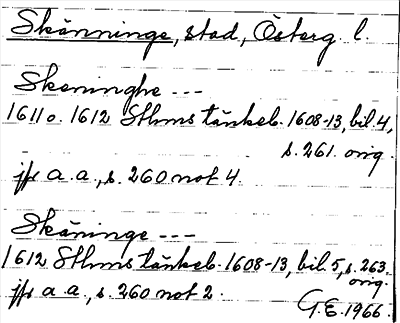 Skänninge, stad, Österg. l.
Skeninghe ---
1611 o. 1612 Sthms tänkeb. 1608-13, bil. 4,
s. 261. orig.
jfr a. a., s. 260 not 4.
Skäninge ---
1612 Sthms tänkeb. 1608-13, bil. 5, s. 263.
orig.
jfr a. a., s. 260 not 2.
G.E. 1966.